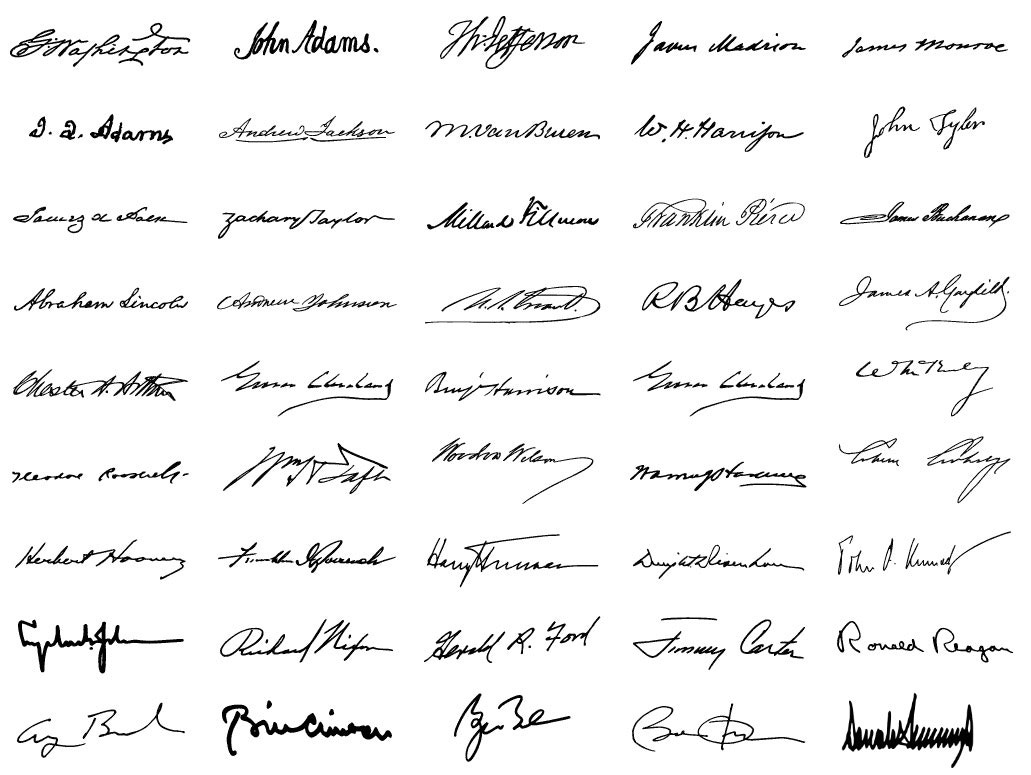 G:Washington John Adams. Th:Jefferson James Madison James Monroe
J. Q. Adams Andrew Jackson M. Van Buren W. H. Harrison John Tyler
James K Polk Zachary Taylor Millard Fillmore Franklin Pierce James Buchanan
Abraham Lincoln Andrew Johnson U. S. Grant. R B Hayes James A. Garfield.
Chester A. Arthur Grover Cleveland Benj Harrison Grover Cleveland Wm McKinley
Theodore Roosevelt Wm H Taft Woodrow Wilson Warren G Harding Calvin Coolidge
Herbert Hoover Franklin D Roosevelt Harry S Truman Dwight D Eisenhower John F. Kennedy
Lyndon B. Johnson Richard Nixon Gerald R. Ford Jimmy Carter Ronald Reagan
Bill Clinton Donald Trump